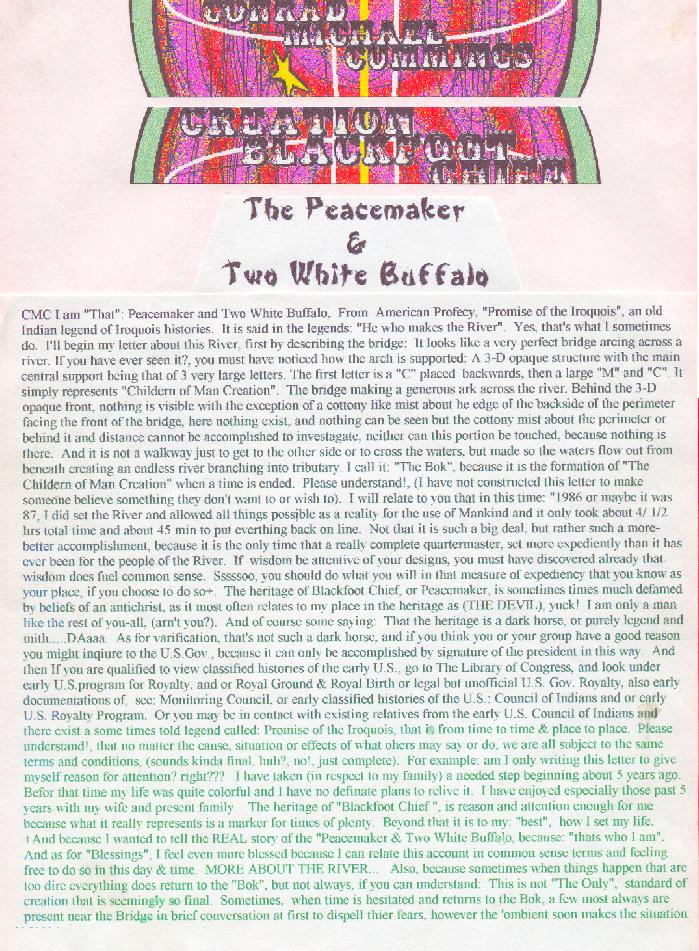 CONRAD
MICHAEL
CUMMINGS
CREATION
BLACKFOOT
CHIEF
The Peacemaker
&
Two White Buffalo
CMC I am "That": Peacemaker and Two White Buffalo, From American Profecy, "Promise of the Iroquois", an old
Indian legend of Iroquois histories. It is said in the legends: "He who makes the River". Yes, that's what I sometimes
do. I'll begin my letter about this River, first by describing the bridge: It looks like a very perfect bridge arcing across a
river. If you have ever seen it?, you must have noticed how the arch is supported: A 3-D opaque structure with the main
central support being that of 3 very large letters. The first letter is a "C" placed backwards, then a large "M" and "C". It
simply represents "Childern of Man Creation". The bridge making a generous ark across the river. Behind the 3-D
opaque front, nothing is visible with the exception of a cottony like mist about he edge of the backside of the perimeter
facing the front of the bridge, here nothing exist, and nothing can be seen but the cottony mist about the perimeter or
behind it and distance cannot be accomplished to investagate, neither can this portion be touched, because nothing is
there. And it is not a walkway just to get to the other side or to cross the waters, but made so the waters flow out from
beneath creating an endless river branching into tributary. I call it: "The Bok", because it is the formation of "The
Childern of Man Creation" when a time is ended. Please understand!, (I have not constructed this letter to make
someone believe something they don't want to or wish to). I will relate to you that in this time: "1986 or maybe it was
87, I did set the River and allowed all things possible as a reality for the use of Mankind and it only took about 4/ 1/2
hrs total time and about 45 min to put everthing back on line. Not that it is such a big deal, but rather such a more-
better accomplishment, because it is the only time that a really complete quartermaster, set more expediently than it has
ever been for the people of the River. If wisdom be attentive of your designs, you must have discovered already that
wisdom does fuel common sense. Sssssoo, you should do what you will in that measure of expediency that you know as
your place, if you choose to do so+. The heritage of Blackfoot Chief, or Peacemaker, is sometimes times much defamed
by beliefs of an antichrist, as it most often relates to my place in the heritage as (THE DEVIL), yuck! I am only a man
like the rest of you-all, (arn't you?). And of course some saying: That the heritage is a dark horse, or purely legend and
mith.....DAaaa. As for varification, that's not such a dark horse, and if you think you or your group have a good reason
you might inqiure to the U.S.Gov., because it can only be accomplished by signature of the president in this way. And
then If you are qualified to view classified histories of the early U.S., go to The Library of Congress, and look under
early U.S.program for Royalty, and or Royal Ground & Royal Birth or legal but unofficial U.S. Gov. Royalty, also early
documentations of, see: Monitoring Council, or early classified histories of the U.S.: Council of Indians and or early
U.S. Royalty Program. Or you may be in contact with existing relatives from the early U.S. Council of Indians and
there exist a some times told legend called: Promise of the Iroquois, that is from time to time & place to place. Please
understand!, that no matter the cause, situation or effects of what ohers may say or do, we are all subject to the same
terms and conditions, (sounds kinda final, huh?, no!, just complete). For example: am I only writing this letter to give
myself reason for attention? right??? I have taken (in respect to my family) a needed step beginning about 5 years ago.
Befor that time my life was quite colorful and I have no definate plans to relive it. I have enjoyed especially those past 5
years with my wife and present family. The heritage of "Blackfoot Chief ", is reason and attention enough for me
because what it really represents is a marker for times of plenty. Beyond that it is to my: "best", how I set my life.
+And because I wanted to tell the REAL story of the "Peacemaker & Two White Buffalo, because: "thats who I am".
And as for "Blessings", I feel even more blessed because I can relate this account in common sense terms and feeling
free to do so in this day & time. MORE ABOUT THE RIVER... Also, because sometimes when things happen that are
too dire everything does return to the "Bok", but not always, if you can understand: This is not "The Only", standard of
creation that is seemingly so final. Sometimes, when time is hesitated and returns to the Bok, a few most always are
present near the Bridge in brief conversation at first to dispell thier fears, however the 'ombient soon makes the situation